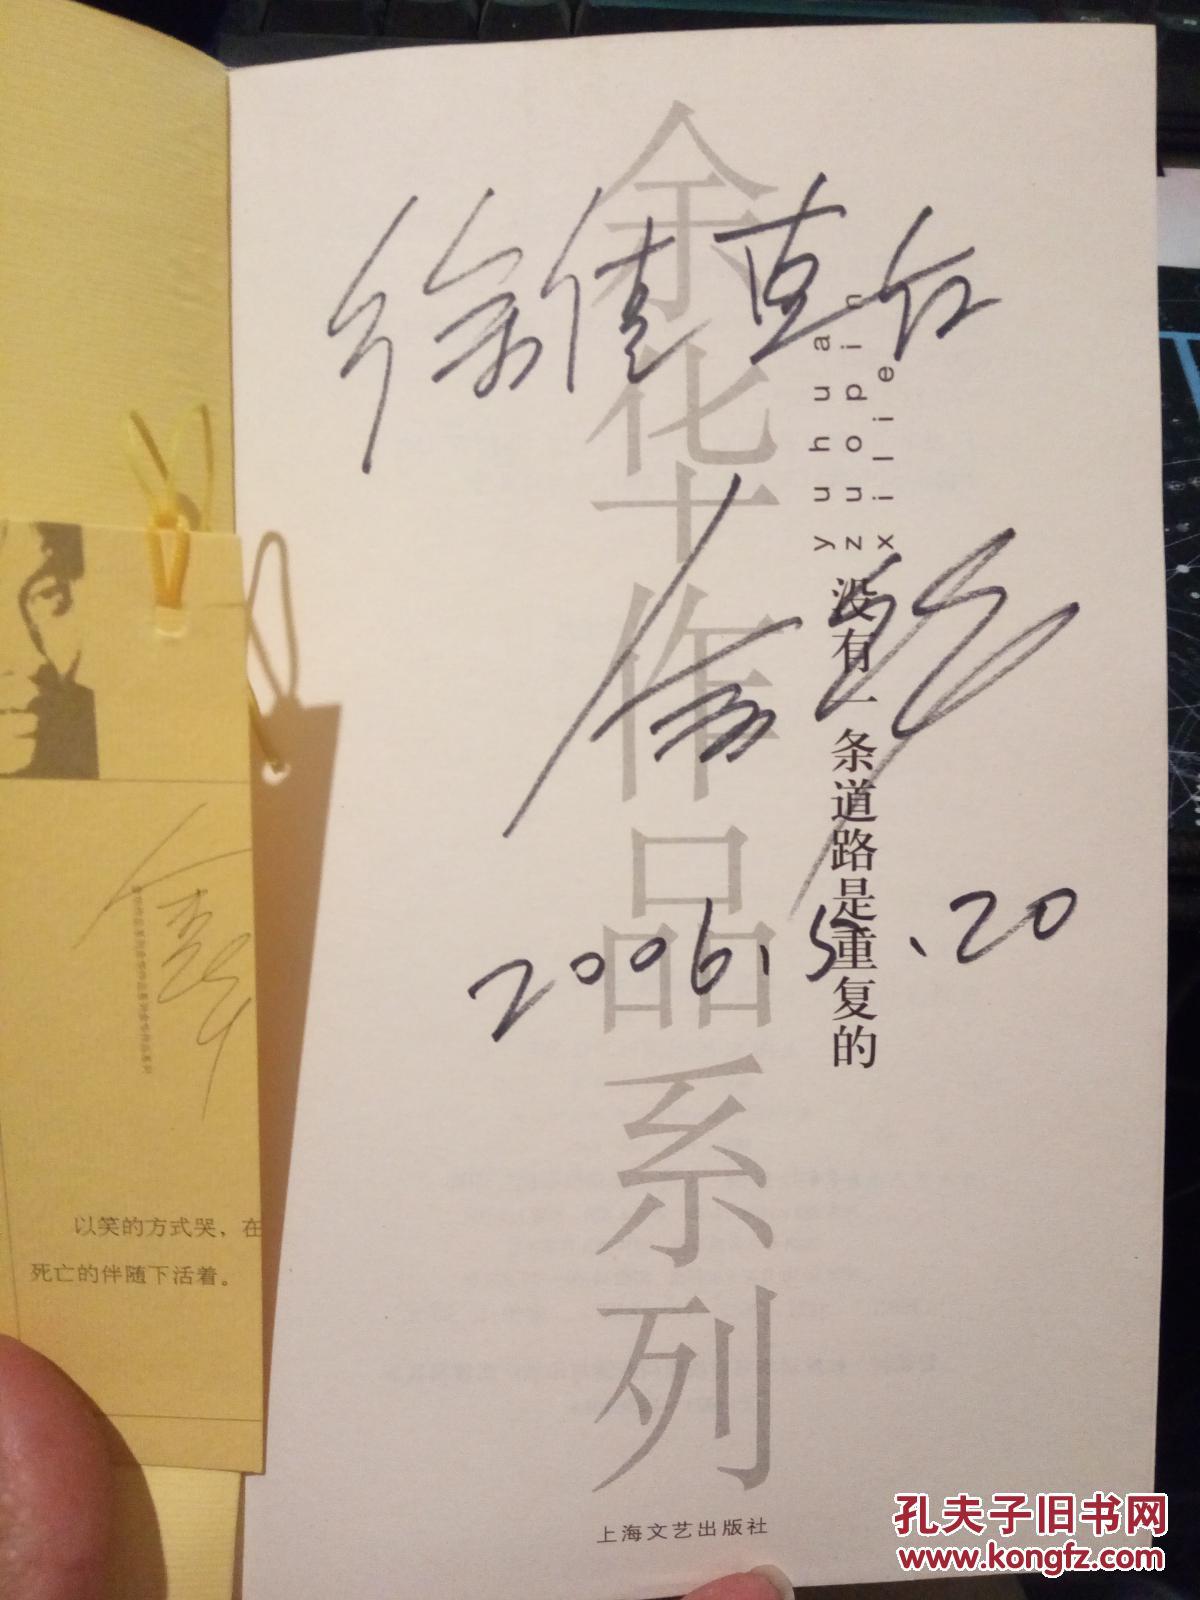 余华作品系列
yuhua
zuopin
xilie
没有一条道路是重复的
徐倩直红
余华
2006.5.20
上海文艺出版社
以笑的方式哭，在
死亡的伴随下活着。
孔夫子旧书网
www.kongfz.com